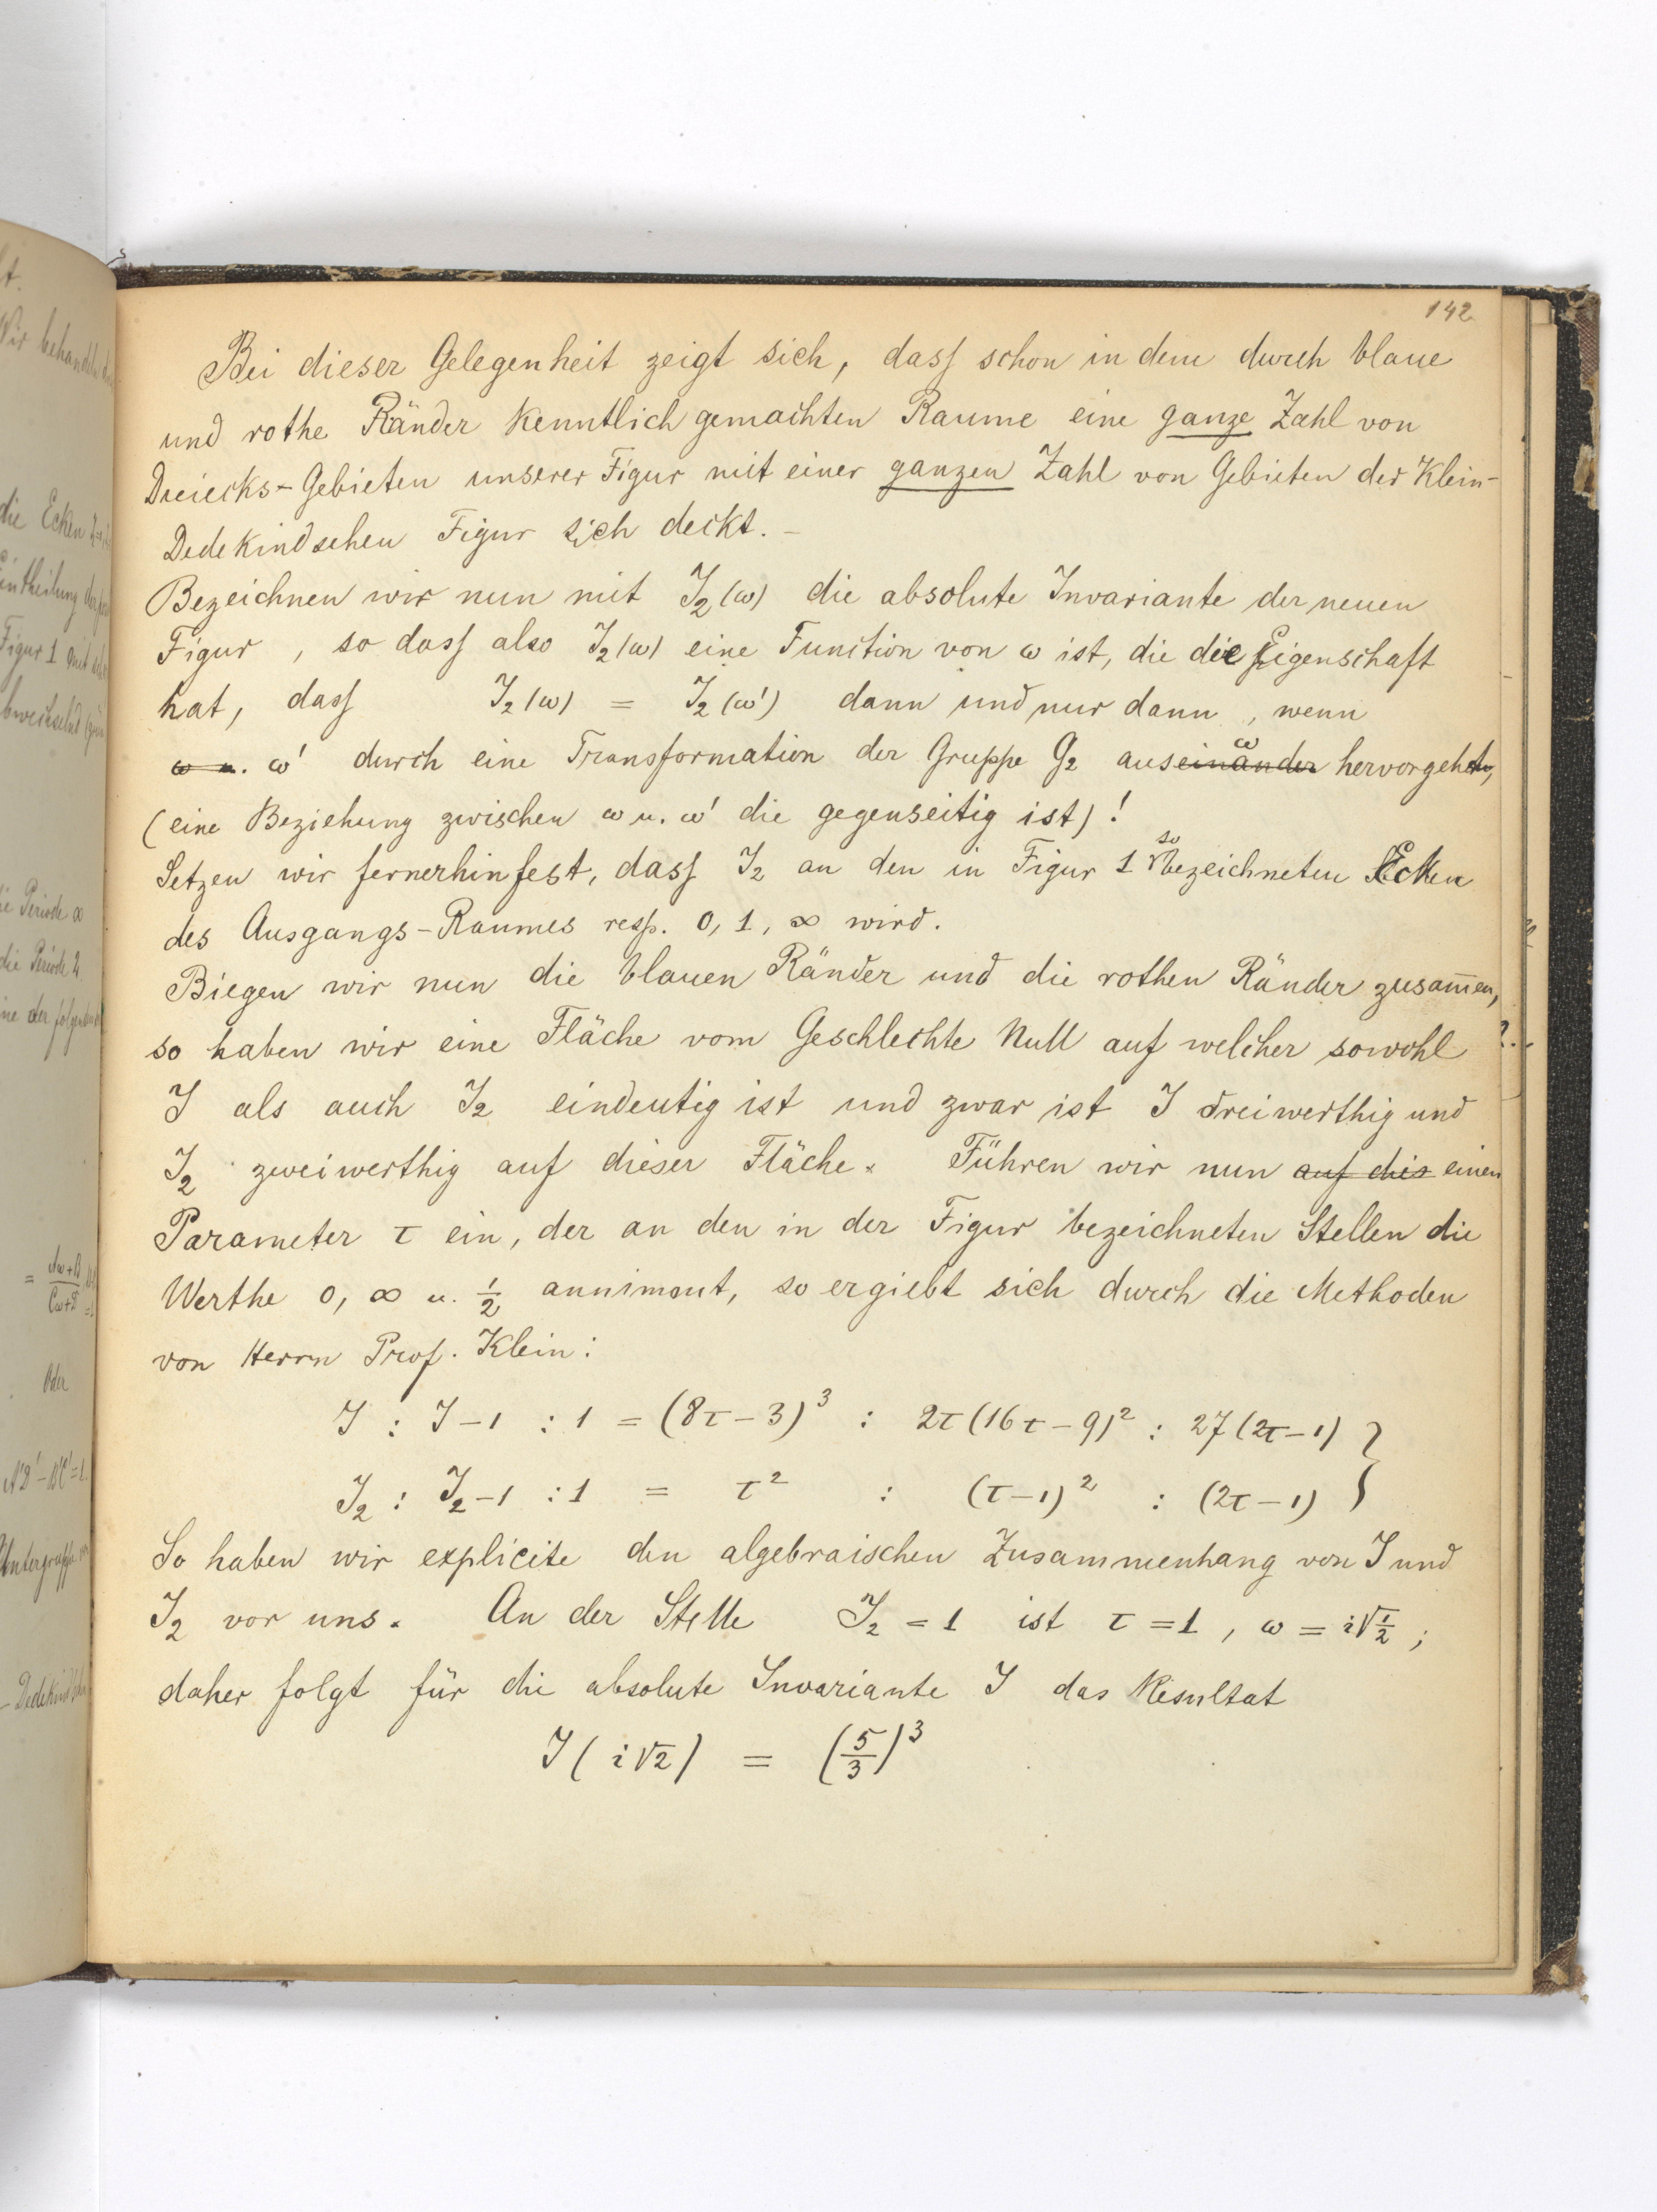 142
Bei dieser Gelegenheit zeigt sich, dass schon in dem durch blaue
und rothe Ränder kenntlich gemachten Raume eine ganze Zahl von
Dreiecks-Gebieten unserer Figur mit einer ganzen Zahl von Gebieten der Klein-
Dedekindschen Figur sich deckt. –
Bezeichnen wir nun mit J₂(ω) die absolute Invariante der neuen
Figur, so dass also J₂(ω) eine Function von ω ist, die die Eigenschaft
hat, dass J₂(ω) = J₂(ω') dann und nur dann, wenn
ω u. ω' durch eine Transformation der Gruppe G₂ auseinander ω hervorgehen,
(eine Beziehung zwischen ω u. ω' die gegenseitig ist)!
Setzen wir fernerhin fest, dass J₂ an den in Figur 1 so bezeichneten Ecken
des Ausgangs-Raumes resp. 0, 1, ∞ wird.
Biegen wir nun die blauen Ränder und die rothen Ränder zusam̅en,
so haben wir eine Fläche vom Geschlechte Null auf welcher sowohl
J als auch J₂ eindeutig ist und zwar ist J dreiwerthig und
J₂ zweiwerthig auf dieser Fläche. Führen wir nun auf dies einen
Parameter τ ein, der an den in der Figur bezeichneten Stellen die
Werthe 0, ∞ u. 1/2 annimmt, so ergiebt sich durch die Methoden
von Herrn Prof. Klein:
J : J-1 : 1 = (8τ-3)³ : 2τ(16τ-9)² : 27(2τ-1) }
J₂ : J₂-1 : 1 = τ² : (τ-1)² : (2τ-1)
So haben wir explicite den algebraischen Zusammenhang von J und
J₂ vor uns. An der Stelle J₂ = 1 ist τ = 1, ω = i√1/2 ;
daher folgt für die absolute Invariante J das Resultat
J(i√2) = (5/3)³